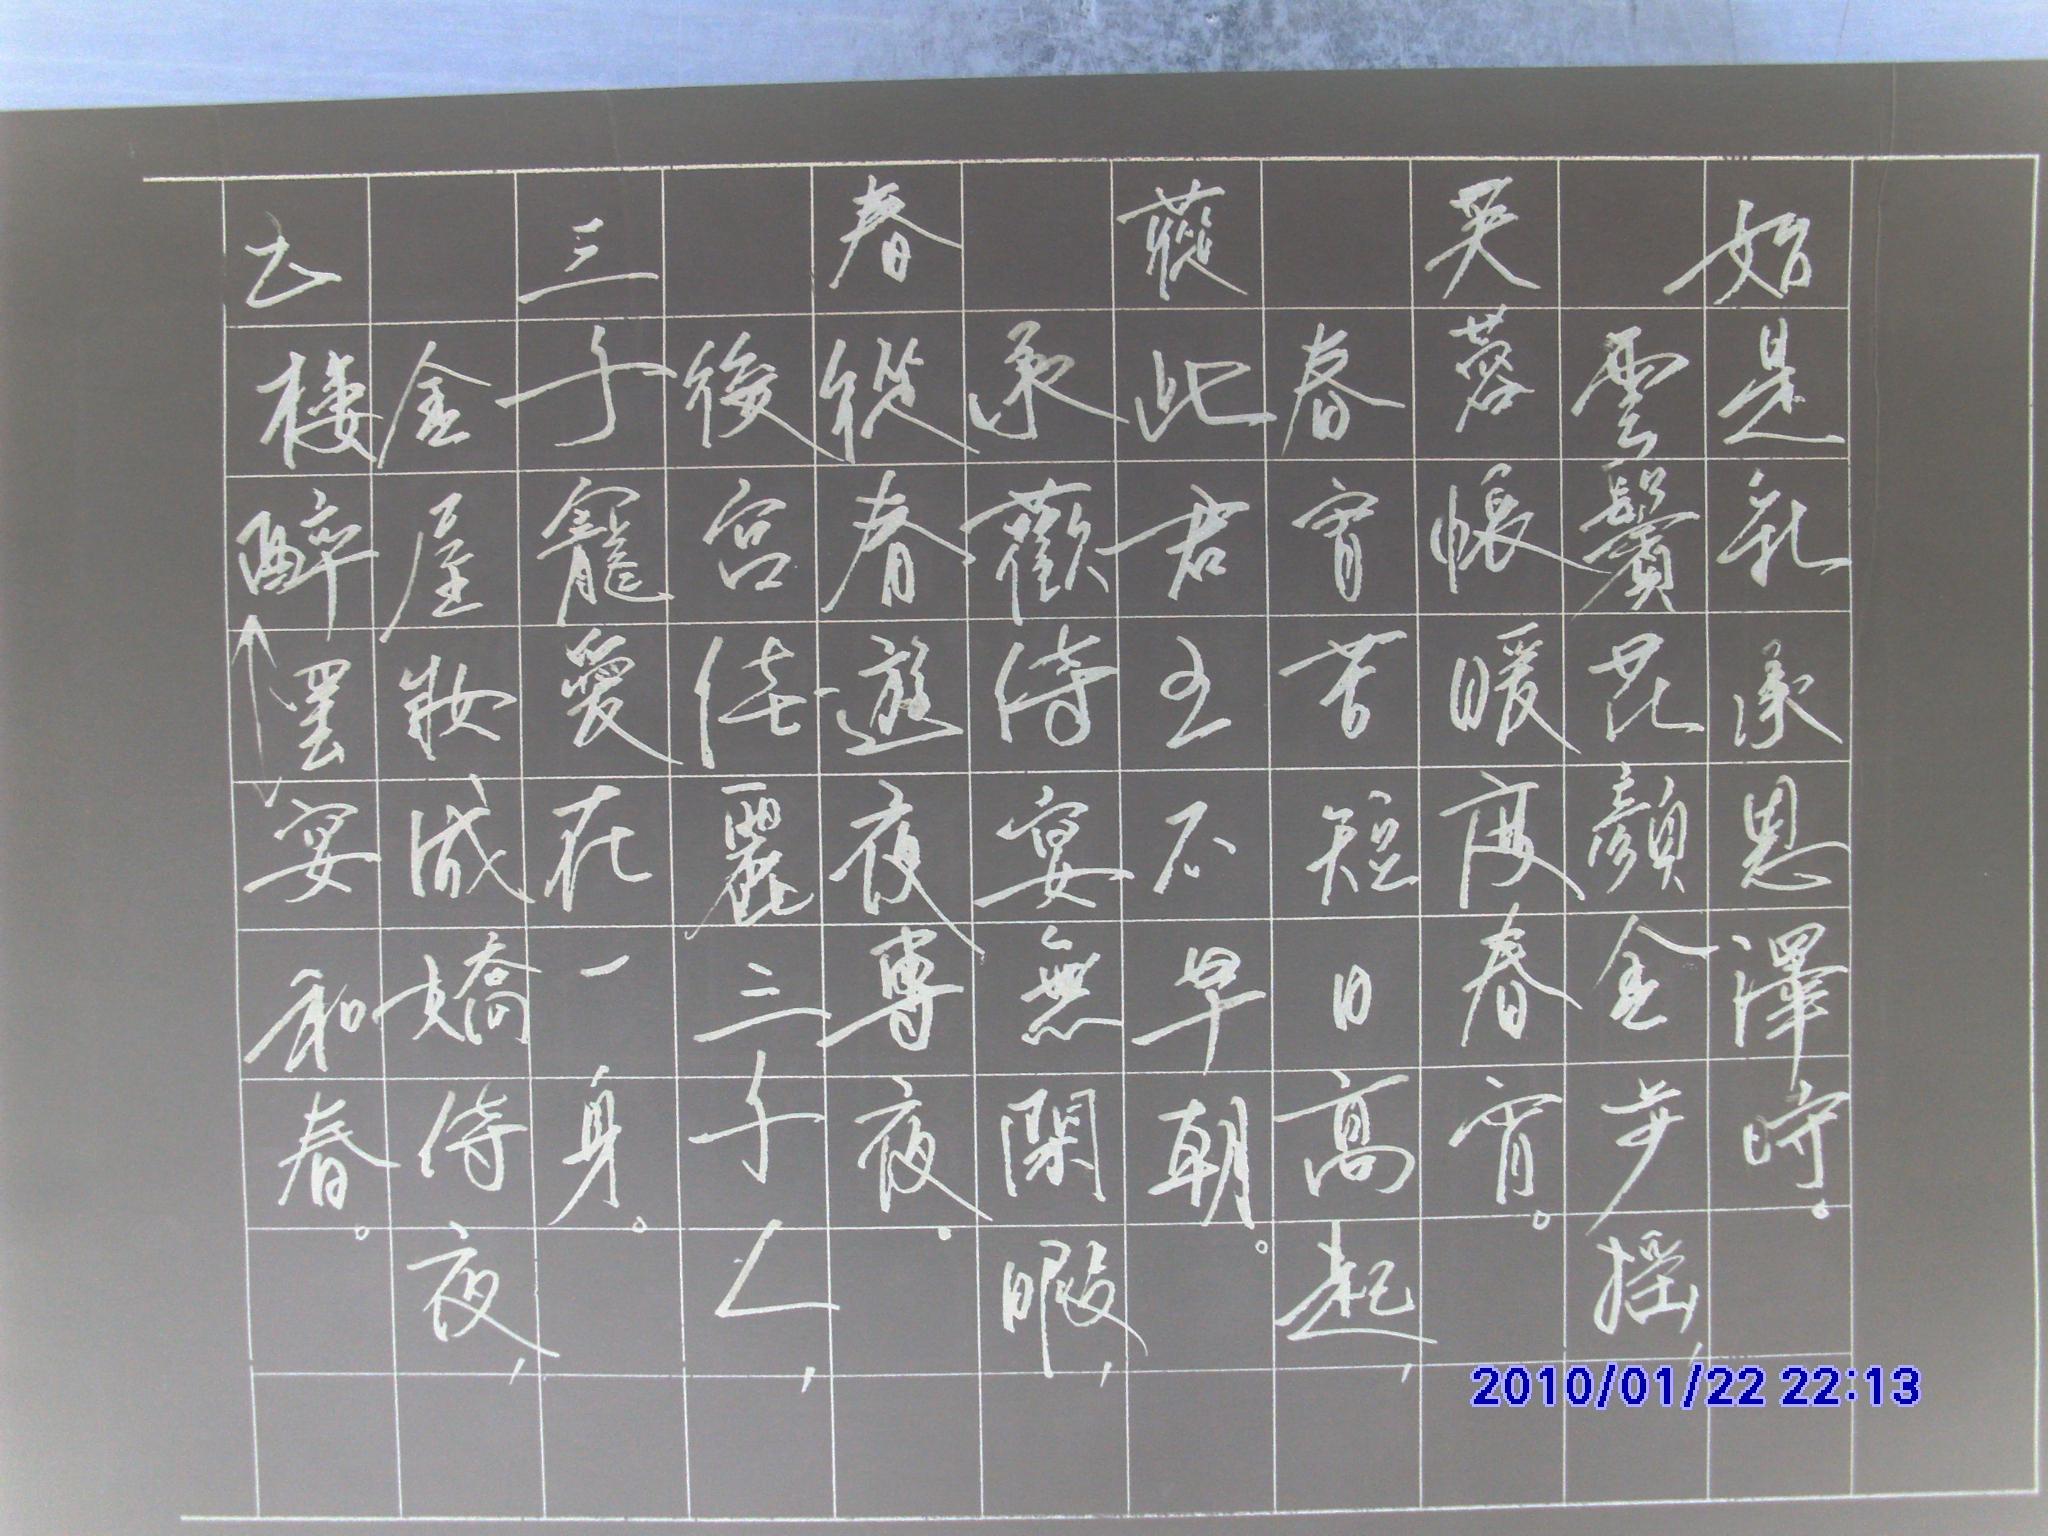 始是新承恩澤時。
雲鬢花顏金步搖，
芙蓉帳暖度春宵。
春宵苦短日高起，
蓯此君王不早朝。
承歡侍宴無閑暇，
春從春遊夜專夜。
後宮佳麗三千人，
三千寵愛在一身。
金屋妝成嬌侍夜，
玉楼醉罷宴和春。
2010/01/22 22:13